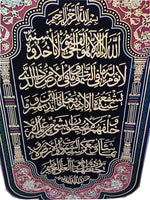 بسم الله الرحمن الرحيم
الله لا إله إلا هو الحي القيوم لا تأخذه سنة
ولا نوم له ما في السموات وما في الأرض من ذا الذي
يشفع عنده إلا بإذنه يعلم ما بين أيديهم وما
خلفهم ولا يحيطون بشيء من علمه إلا
بما شاء وسع كرسيه السموات والأرض
ولا يؤده حفظهما وهو العلي العظيم